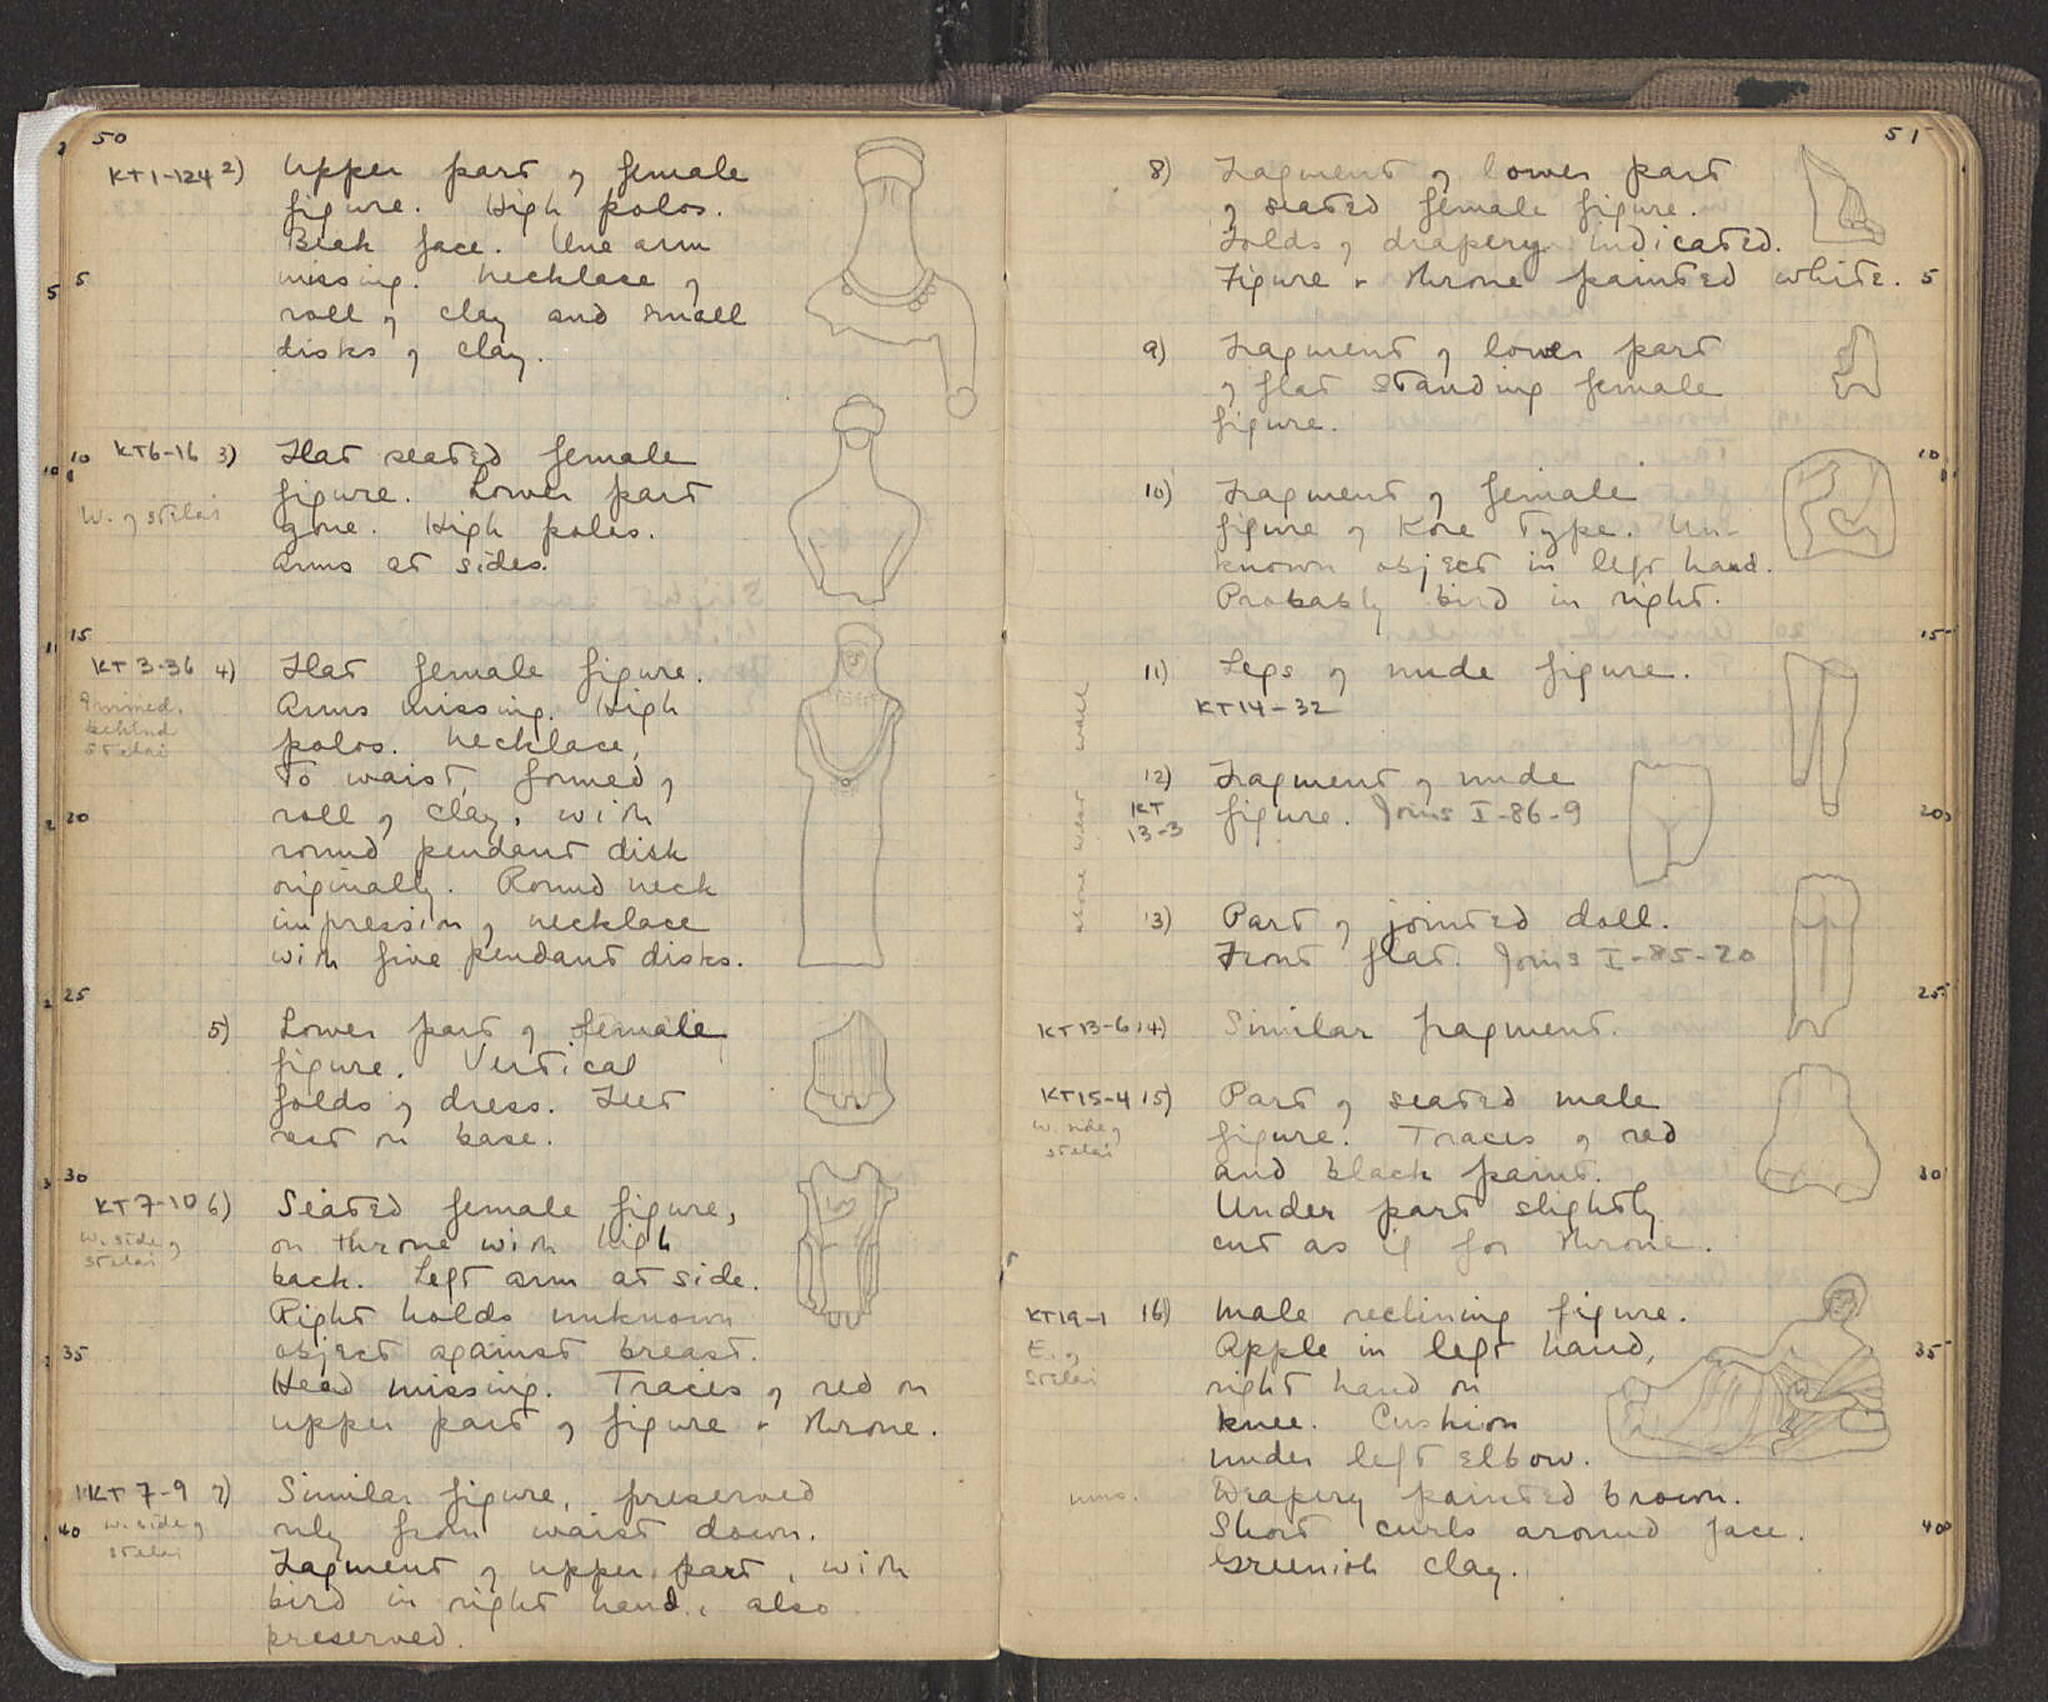 50
KT1-124 2) Upper part of female
figure. High polos.
Beak face. One arm
5 missing. Necklace of
roll of clay and small
disks of clay.
10 KT6-16 3) Flat seated female
W. of stelai figure. Lower part
gone. High polos.
Arms at sides.
15
KT 3-36 4) Flat female figure.
Arms missing. High
behind polos. Necklace,
stelai
to waist, formed of
20 roll of clay, with
round pendant disk
originally. Round neck
impression of necklace
with five pendant disks.
25
5) Lower part of female
figure. Vertical
folds of dress. Feet
rest on base.
30
KT7-10 6) Seated female figure,
W. side of on throne with high
stelai
back. Left arm at side.
Right holds unknown
35 object against breast.
Head missing. Traces of red on
upper part of figure + throne.
KT 7-9 7) Similar figure, preserved
W. side of
40 only from waist down.
stelai
Fragment of upper part, with
bird in right hand, also
preserved.
51
8) Fragment of lower part
of seated female figure.
Folds of drapery indicated.
Figure + throne painted white. 5
9) Fragment of lower part
of flat standing female
figure.
10
10) Fragment of female
figure of Kore type. Un-
known object in left hand.
Probably bird in right.
15
11) Legs of nude figure.
KT14-32
12) Fragment of nude
KT
13-3 figure. Joins I-86-9 20
above west wall
13) Part of jointed doll.
Front flat. Joins I-85-20
25
KT13-6 14) Similar fragment.
KT15-4 15) Part of seated male
W. side of
stelai figure. Traces of red
and black paint. 30
Under part slightly
cut as if for throne.
KT19-1 16) Male reclining figure.
E. of Apple in left hand, 35
stelai right hand on
knee. Cushion
under left elbow.
Drapery painted brown.
Short curls around face. 40
Greenish clay.